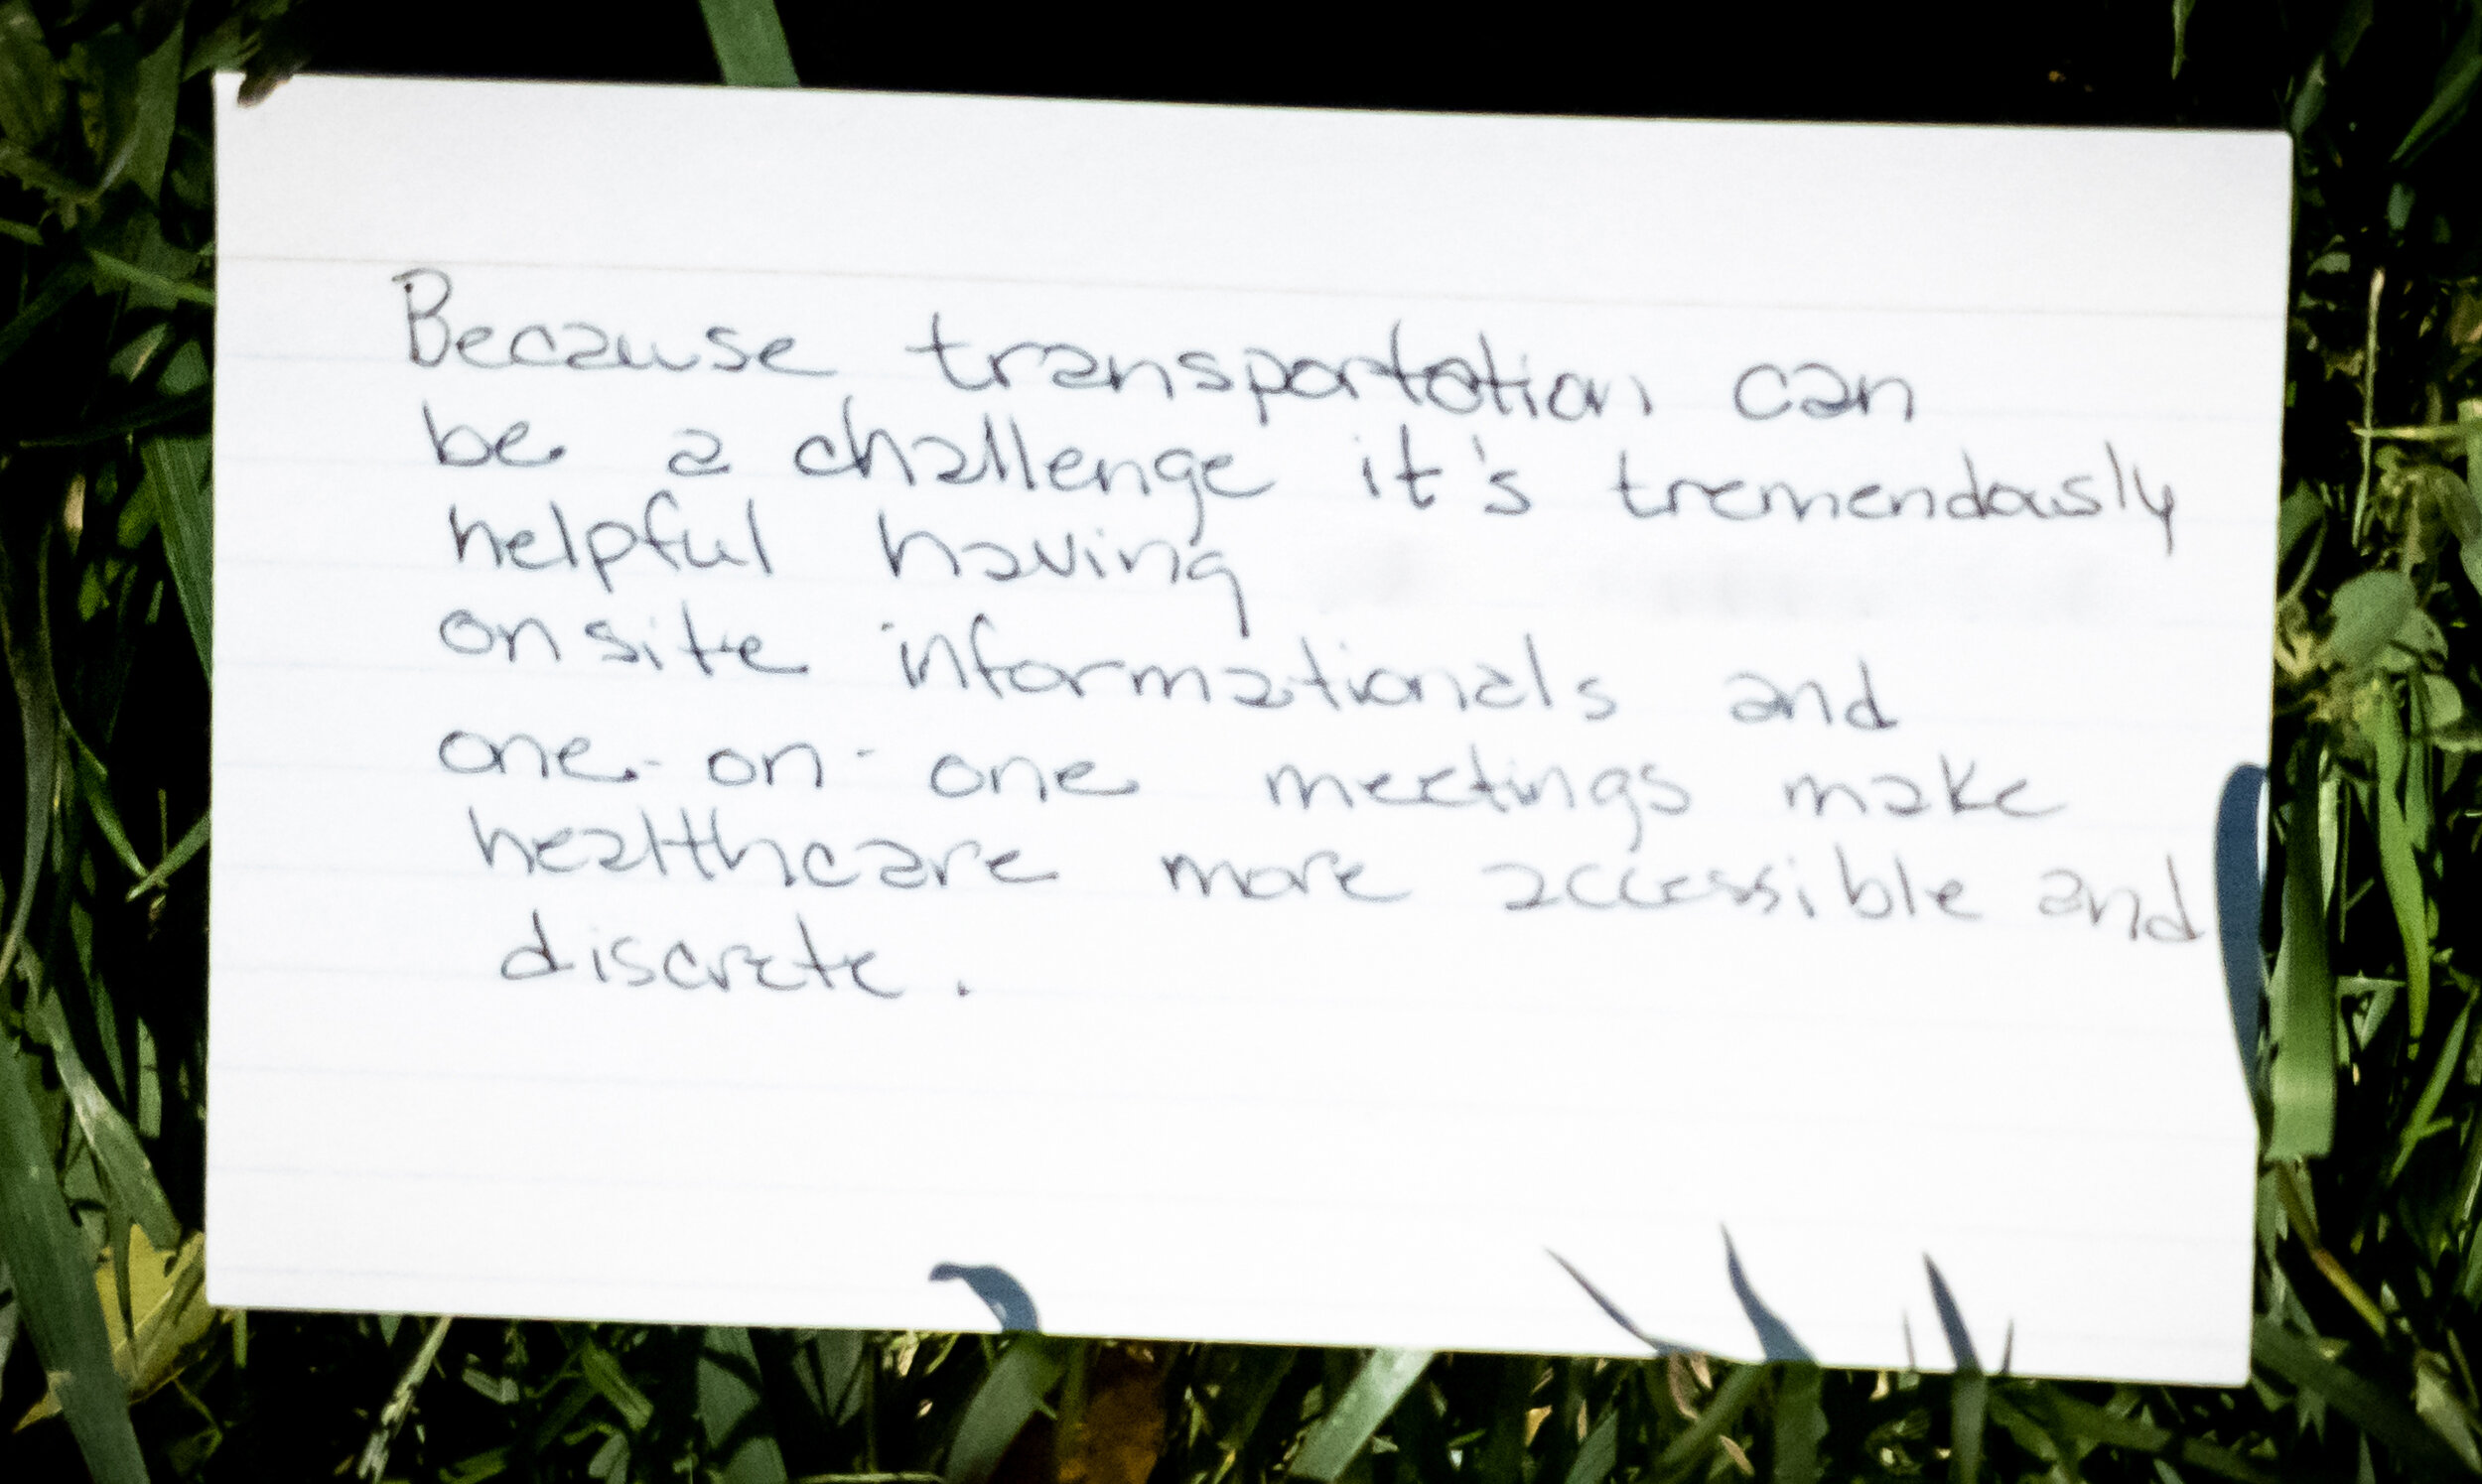 Because transportation can
be a challenge it's tremendously
helpful having
onsite informationals and
one-on-one meetings make
healthcare more accessible and
discrete.